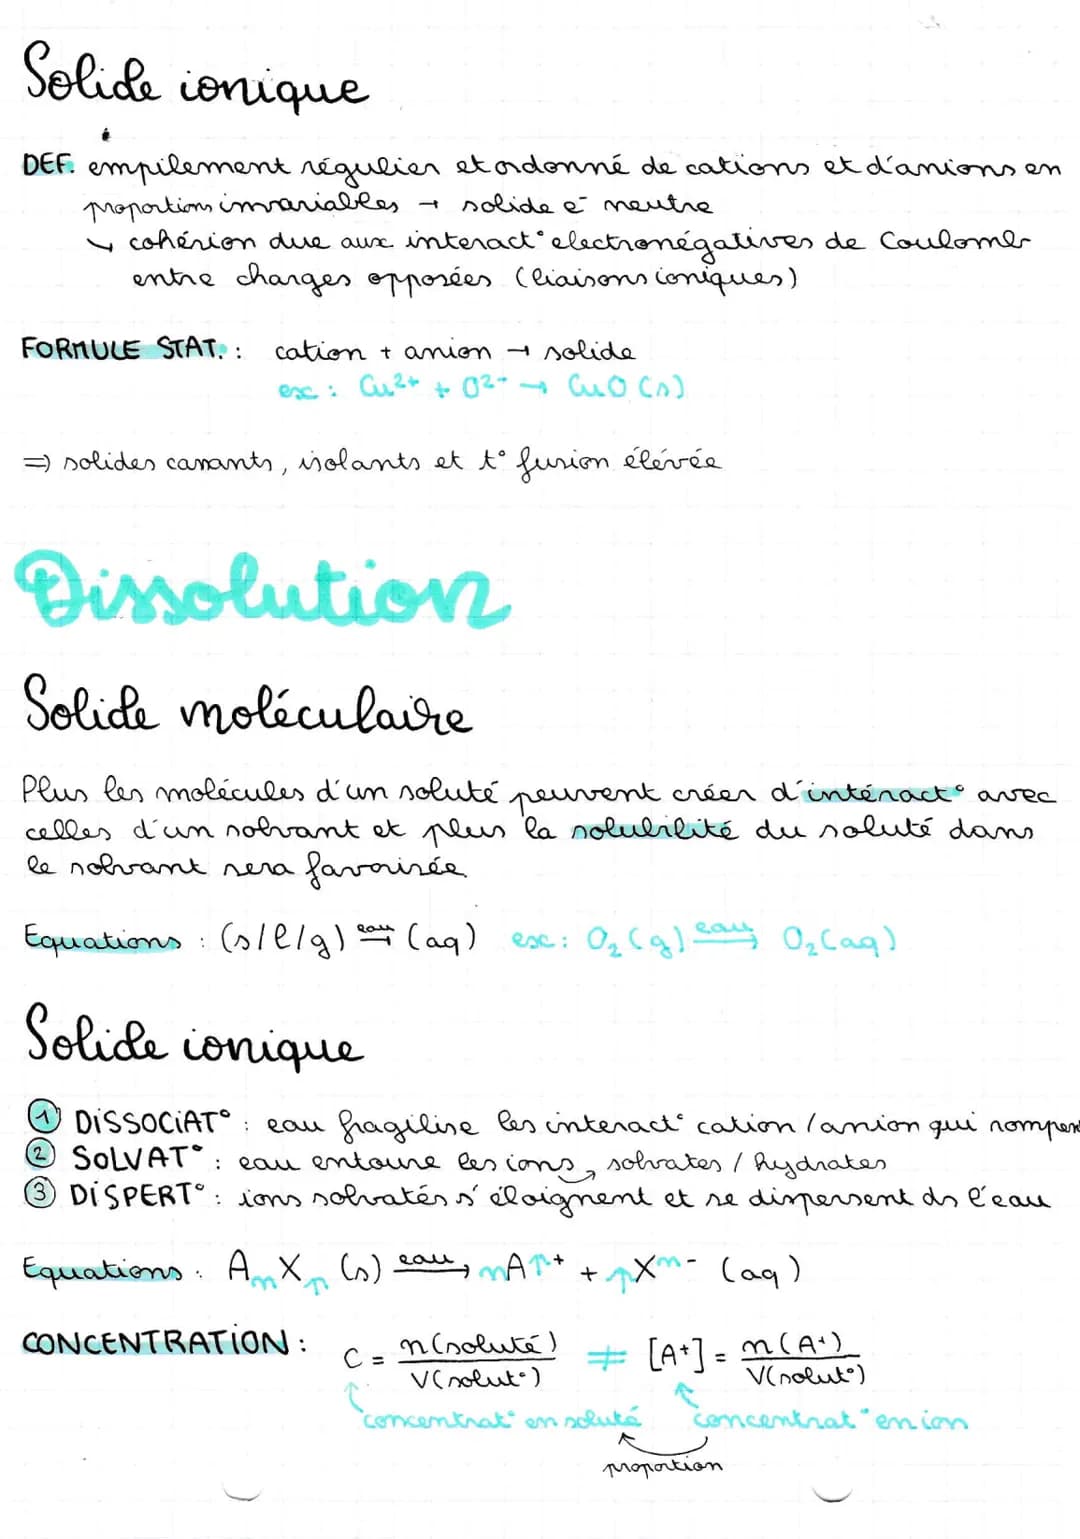 Solide ionique
DEF. empilement régulier et ordonné de cations et d'anions en
proportions invariables → solide é neutre
↳ cohésion due aux interact° electronégatives de Coulomb
entre charges opposées (liaisons ioniques)
FORMULE STAT. : cation + anion → solide
ex : Cu²⁺ + O²⁻ → CuO (s)
⇒ solides cassants, isolants et t° fusion élévée
Dissolution
Solide moléculaire
Plus les molécules d'un soluté peuvent créer d'intéract° avec
celles d'un solvant et plus la solubilité du soluté dans
le solvant sera favorisée.
Equations : (s/l/g) eau→ (aq) ex : O₂(g) eau→ O₂(aq)
Solide ionique
① DISSOCIAT° : eau fragilise les interact° cation/anion qui rompent
② SOLVAT° : eau entoure les ions, solvates / hydrates
③ DISPERT° : ions solvatés s'éloignent et se dispersent ds l'eau
Equations : AₘXₚ (s) eau→ mAᵖ⁺ + pXᵐ⁻ (aq)
CONCENTRATION : C = n(soluté) / V(solut°) ≠ [A⁺] = n(A⁺) / V(solut°)
concentrat° en soluté concentrat° en ion
proportion